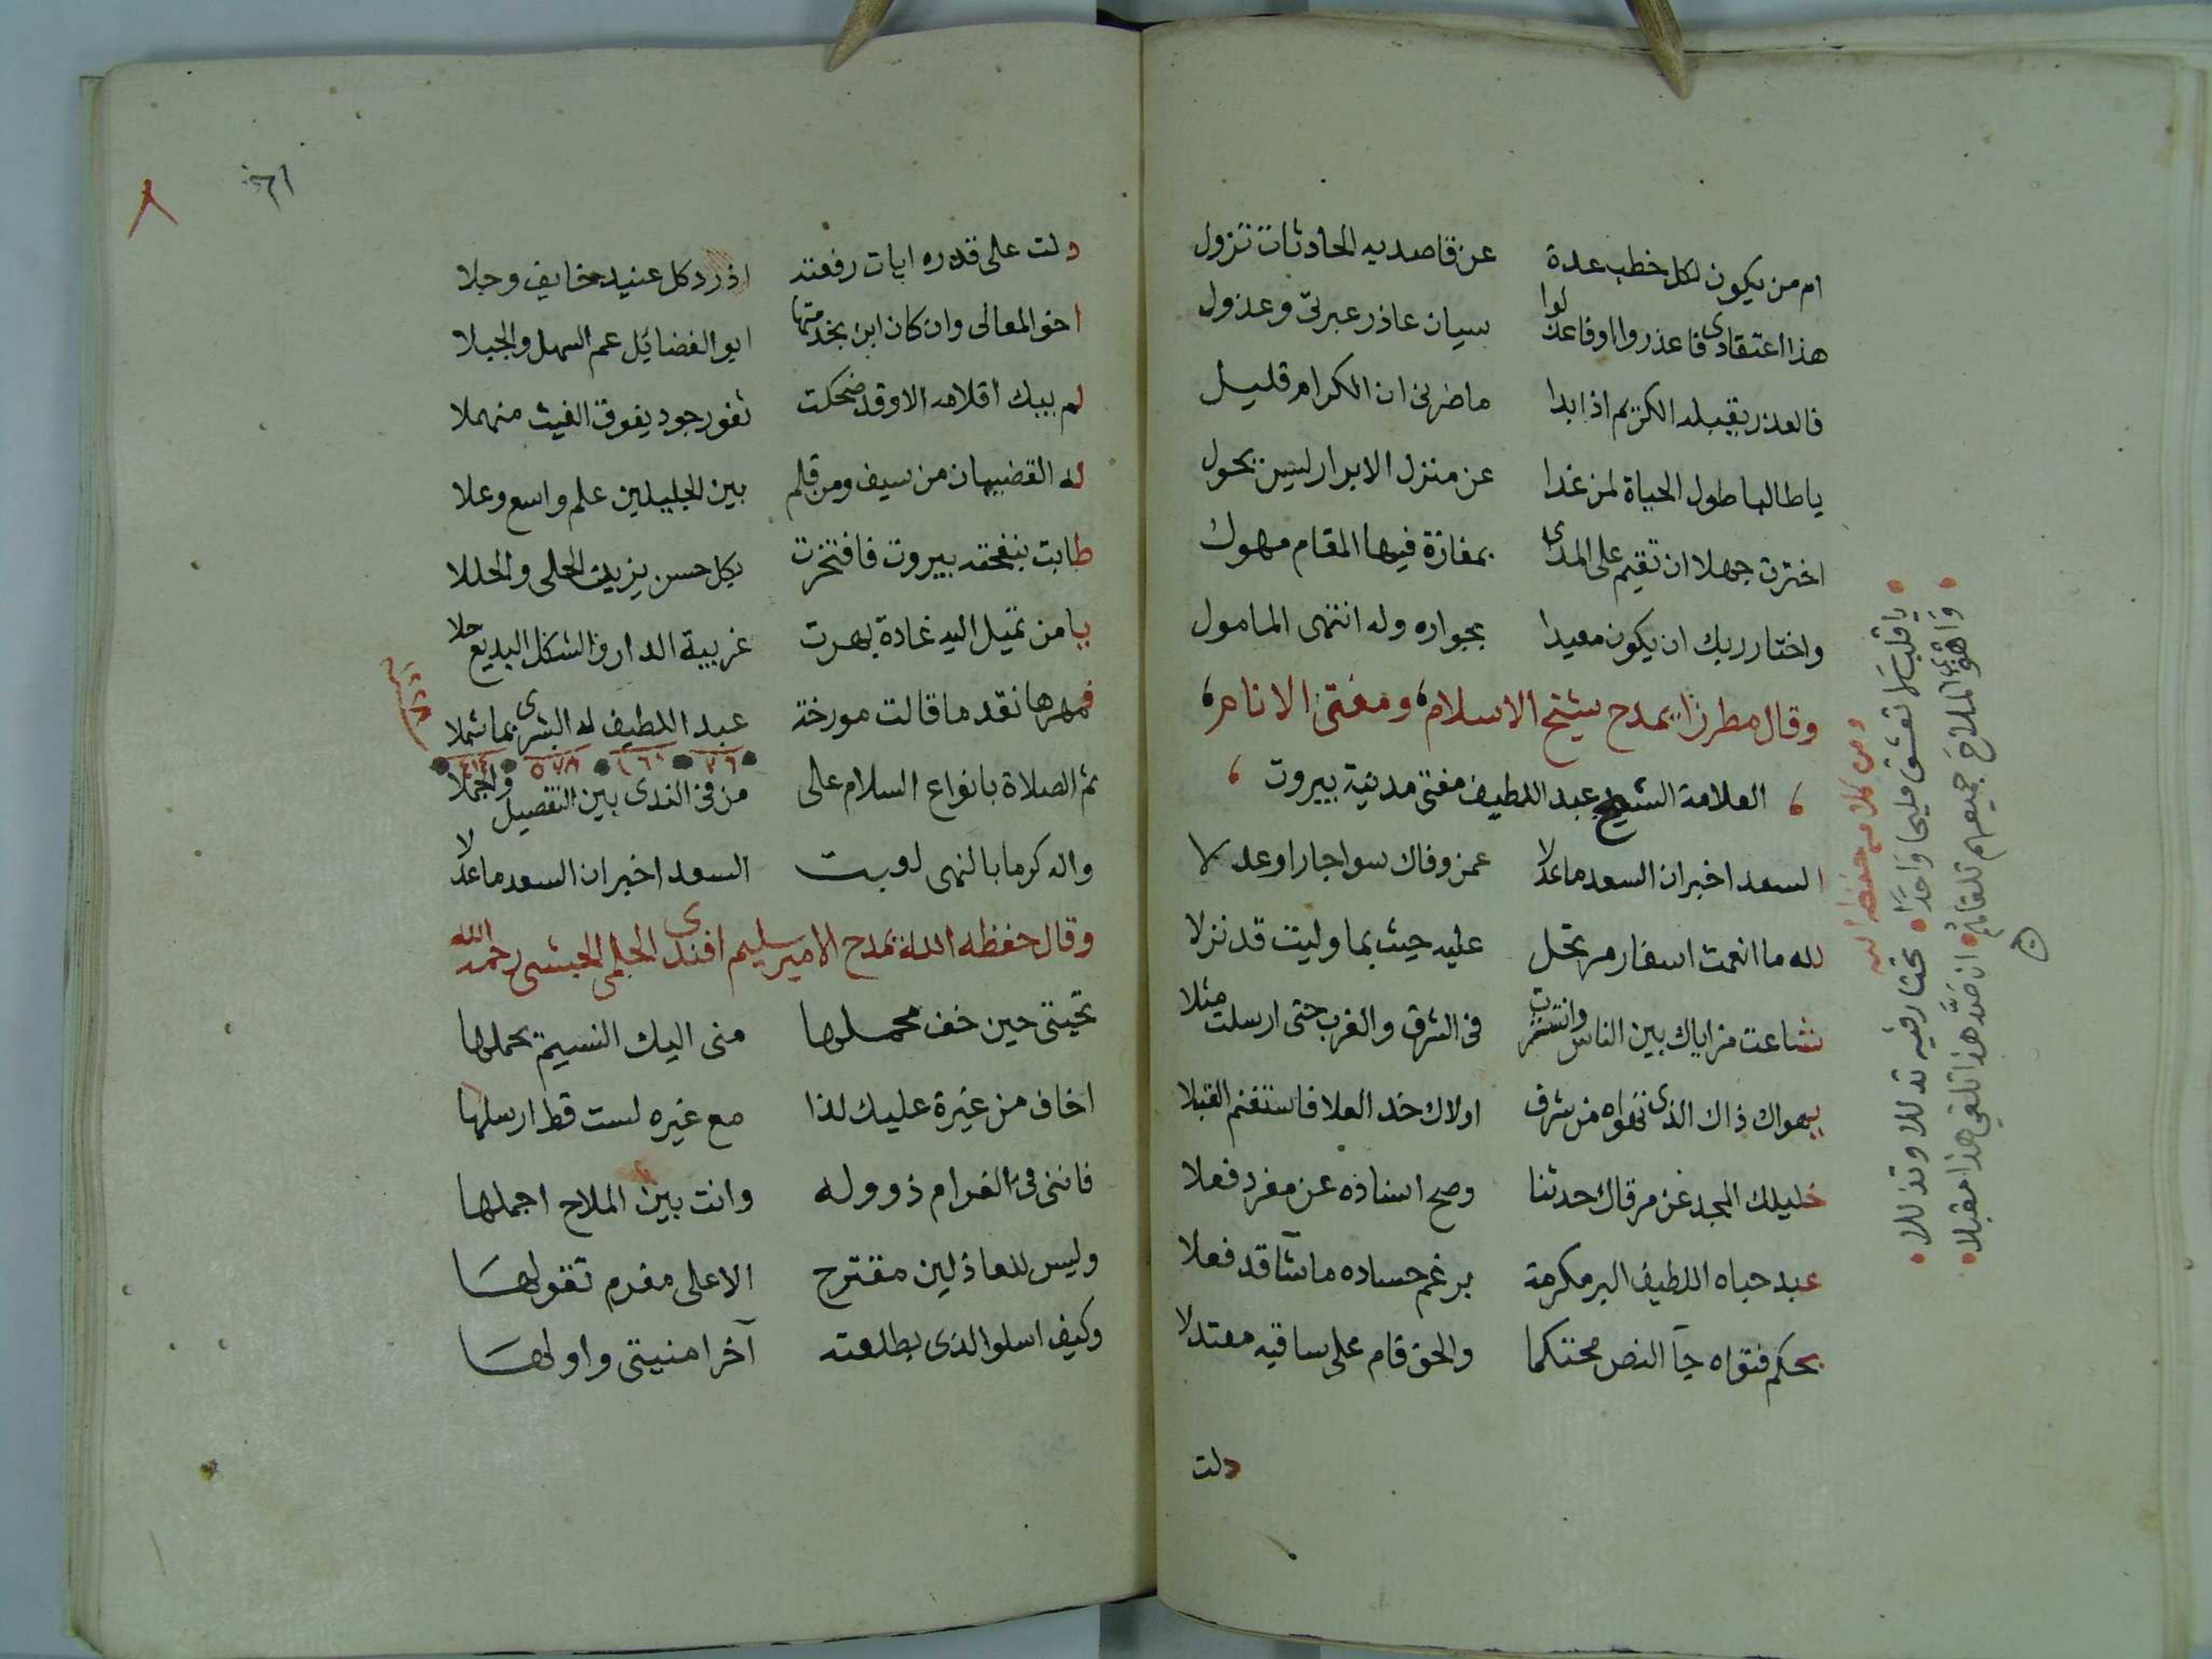 ام من يكون لكل خطب عدة عن قاصديه الحادثات تزول
هذا اعتقادى فاعذروا اوفاعذلوا سيان عاذر عبرتى وعذول
فالعذر يقبله الكريم اذا بدا ماضرنى ان الكرام قليل
ياطالبا طول الحياة لمن غدا عن منزل الابرار ليس يحول
اخترت جهلا ان تقيم على المدى بمفازة فيها المقام مهول
واختار ربك ان يكون معيدا بجواره وله انتهى المامول
وقال مطرزا يمدح شيخ الاسلام ومفتى الانام
العلامة الشيخ عبد اللطيف مفتى مدينة بيروت
السعد اخبر ان السعد ماعدلا عمن وفاك سوا جار اوعدلا
لله ما انعمت اسفار مرتحل عليه حيث بما وليت قد نزلا
شاعت مزاياك بين الناس وانتشرت فى الشرق والغرب حتى ارسلت مثلا
يهواك ذاك الذى تهواه من شرف اولاك خد العلا فاستغنم القبلا
خليلك المجد عن مرقاك حدثنا وصح اسناده عن مفرد فعلا
عبد حباه اللطيف البر مكرمة برغم حساده ماشآ قد فعلا
بحكم فتواه جآ النص محتكما والحق قام على ساقيه معتدلا
دلت
ومن كلامه حفظه الله
ياقلب لا تعشق مليحا واحدا تختار فيه تدللا وتذللا
واهوى الملاح جميعهم تلقاهم ان صد هذا تلقى هذا مقبلا
دلت على قدره ايات رفعته اذ رد كل عنيد خايف وجلا
اخو المعالى وان كان ابن بجدتها ابو الفضائيل عم السهل والجبلا
لم يبك اقلامه الا وقد ضحكت ثغور جود يفوق الغيث منهملا
له القضيبان من سيف ومن قلم بين الجليلين علم واسع وعلا
طابت بنفحته بيروت فافتخرت بكل حسن يزين الحلى والحللا
يا من تميل اليه غادة بهرت غريبة الدار والشكل البديع حلا
فمهرها نقد ما قالت مورخة عبد اللطيف له البشرى بما شملا
٧٦ ٥٧٨ ٤١٤
ثم الصلاة بانواع السلام على من فى الندى بين التفصيل واجملا
واله كرما بالنهى لوبت السعد اخبر ان السعد ماعدلا
وقال حفظه الله يمدح الامير سليم افندى الجلمى الحبشى رحمه الله
تحيتى حين خف محملها منى اليك النسيم يحملها
اخاف من غيرة عليك لذا مع غيره لست قط ارسلها
فاننى فى الغرام ذو وله وانت بين الملاح اجملها
وليس للعاذلين مقترح الا على مغرم تقولها
وكيف اسلوا الذى بطلعته آخر امنيتى واولها